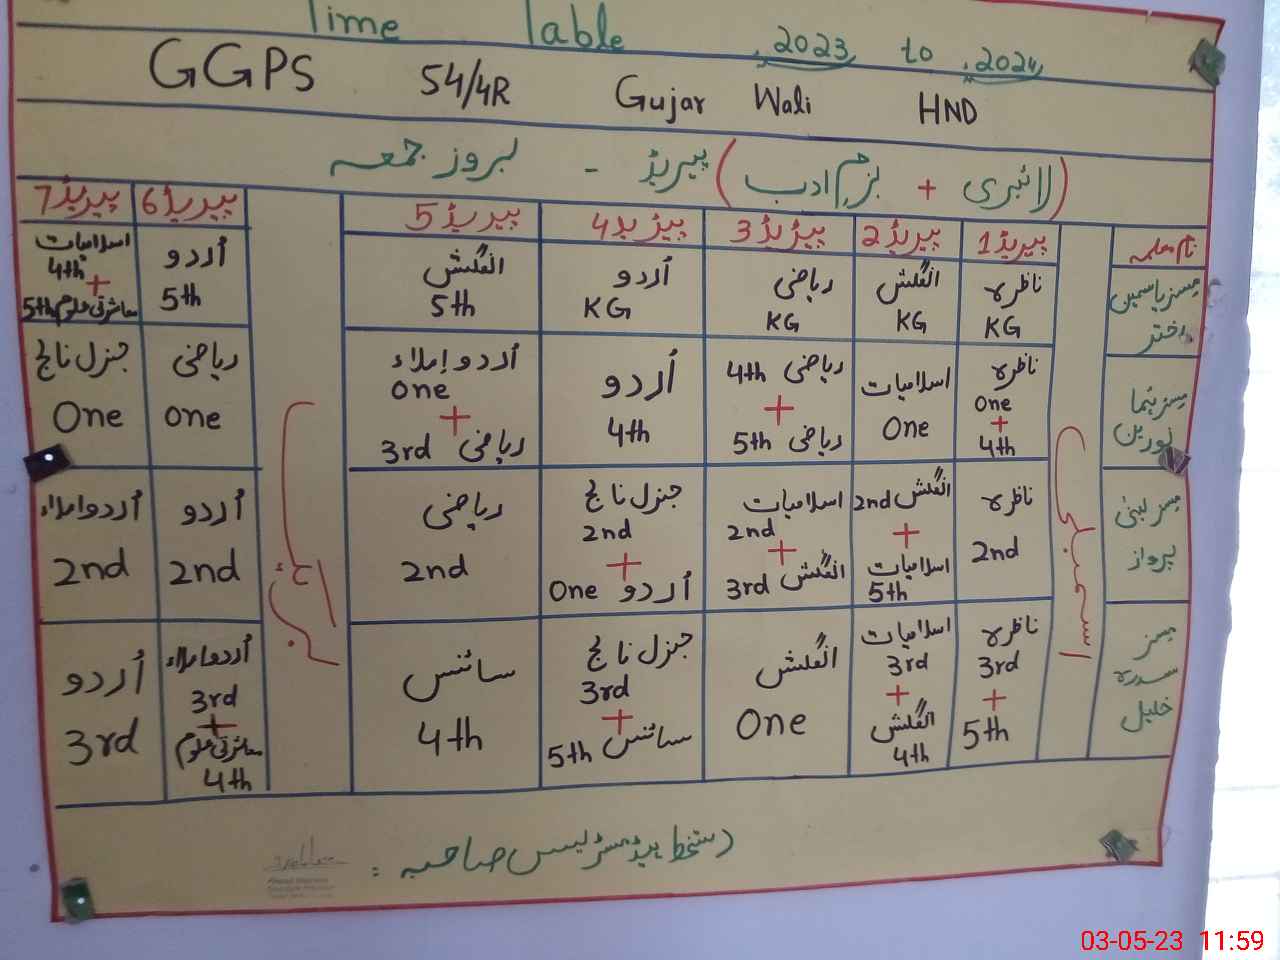 Time Table 2023 to 2024
GGPS 54/4R Gujar Wali HND
(لائبریری + بزم ادب) پیریڈ - بروز جمعہ
نام معلمہ پیریڈ 1 پیریڈ 2 پیریڈ 3 پیریڈ 4 پیریڈ 5 پیریڈ 6 پیریڈ 7
مسز یاسمین اختر
ناظرہ
KG
انگلش
KG
ریاضی
KG
اردو
KG
انگلش
5th
اُردو
5th
اسلامیات
4th
+
معاشرتی علوم 5th
اسمبلی
بریک
نورین
ناظرہ
One
+
4th
اسلامیات
One
ریاضی 4th
+
ریاضی 5th
اُردو
4th
اُردو املاء
One
+
ریاضی 3rd
ریاضی
One
جنرل نالج
One
مسز لبنیٰ
پرواز
ناظرہ
2nd
انگلش 2nd
+
اسلامیات
5th
اسلامیات
2nd
+
انگلش 3rd
جنرل نالج
2nd
+
اُردو One
ریاضی
2nd
اُردو
2nd
اُردو املاء
2nd
مسز
سدرہ
خلیل
ناظرہ
3rd
+
5th
اسلامیات
3rd
+
انگلش
4th
انگلش
One
جنرل نالج
3rd
+
سائنس 5th
سائنس
4th
اُردو املاء
3rd
+
معاشرتی علوم
4th
اُردو
3rd
دستخط ہیڈ مسٹریس صاحبہ :
03-05-23 11:59